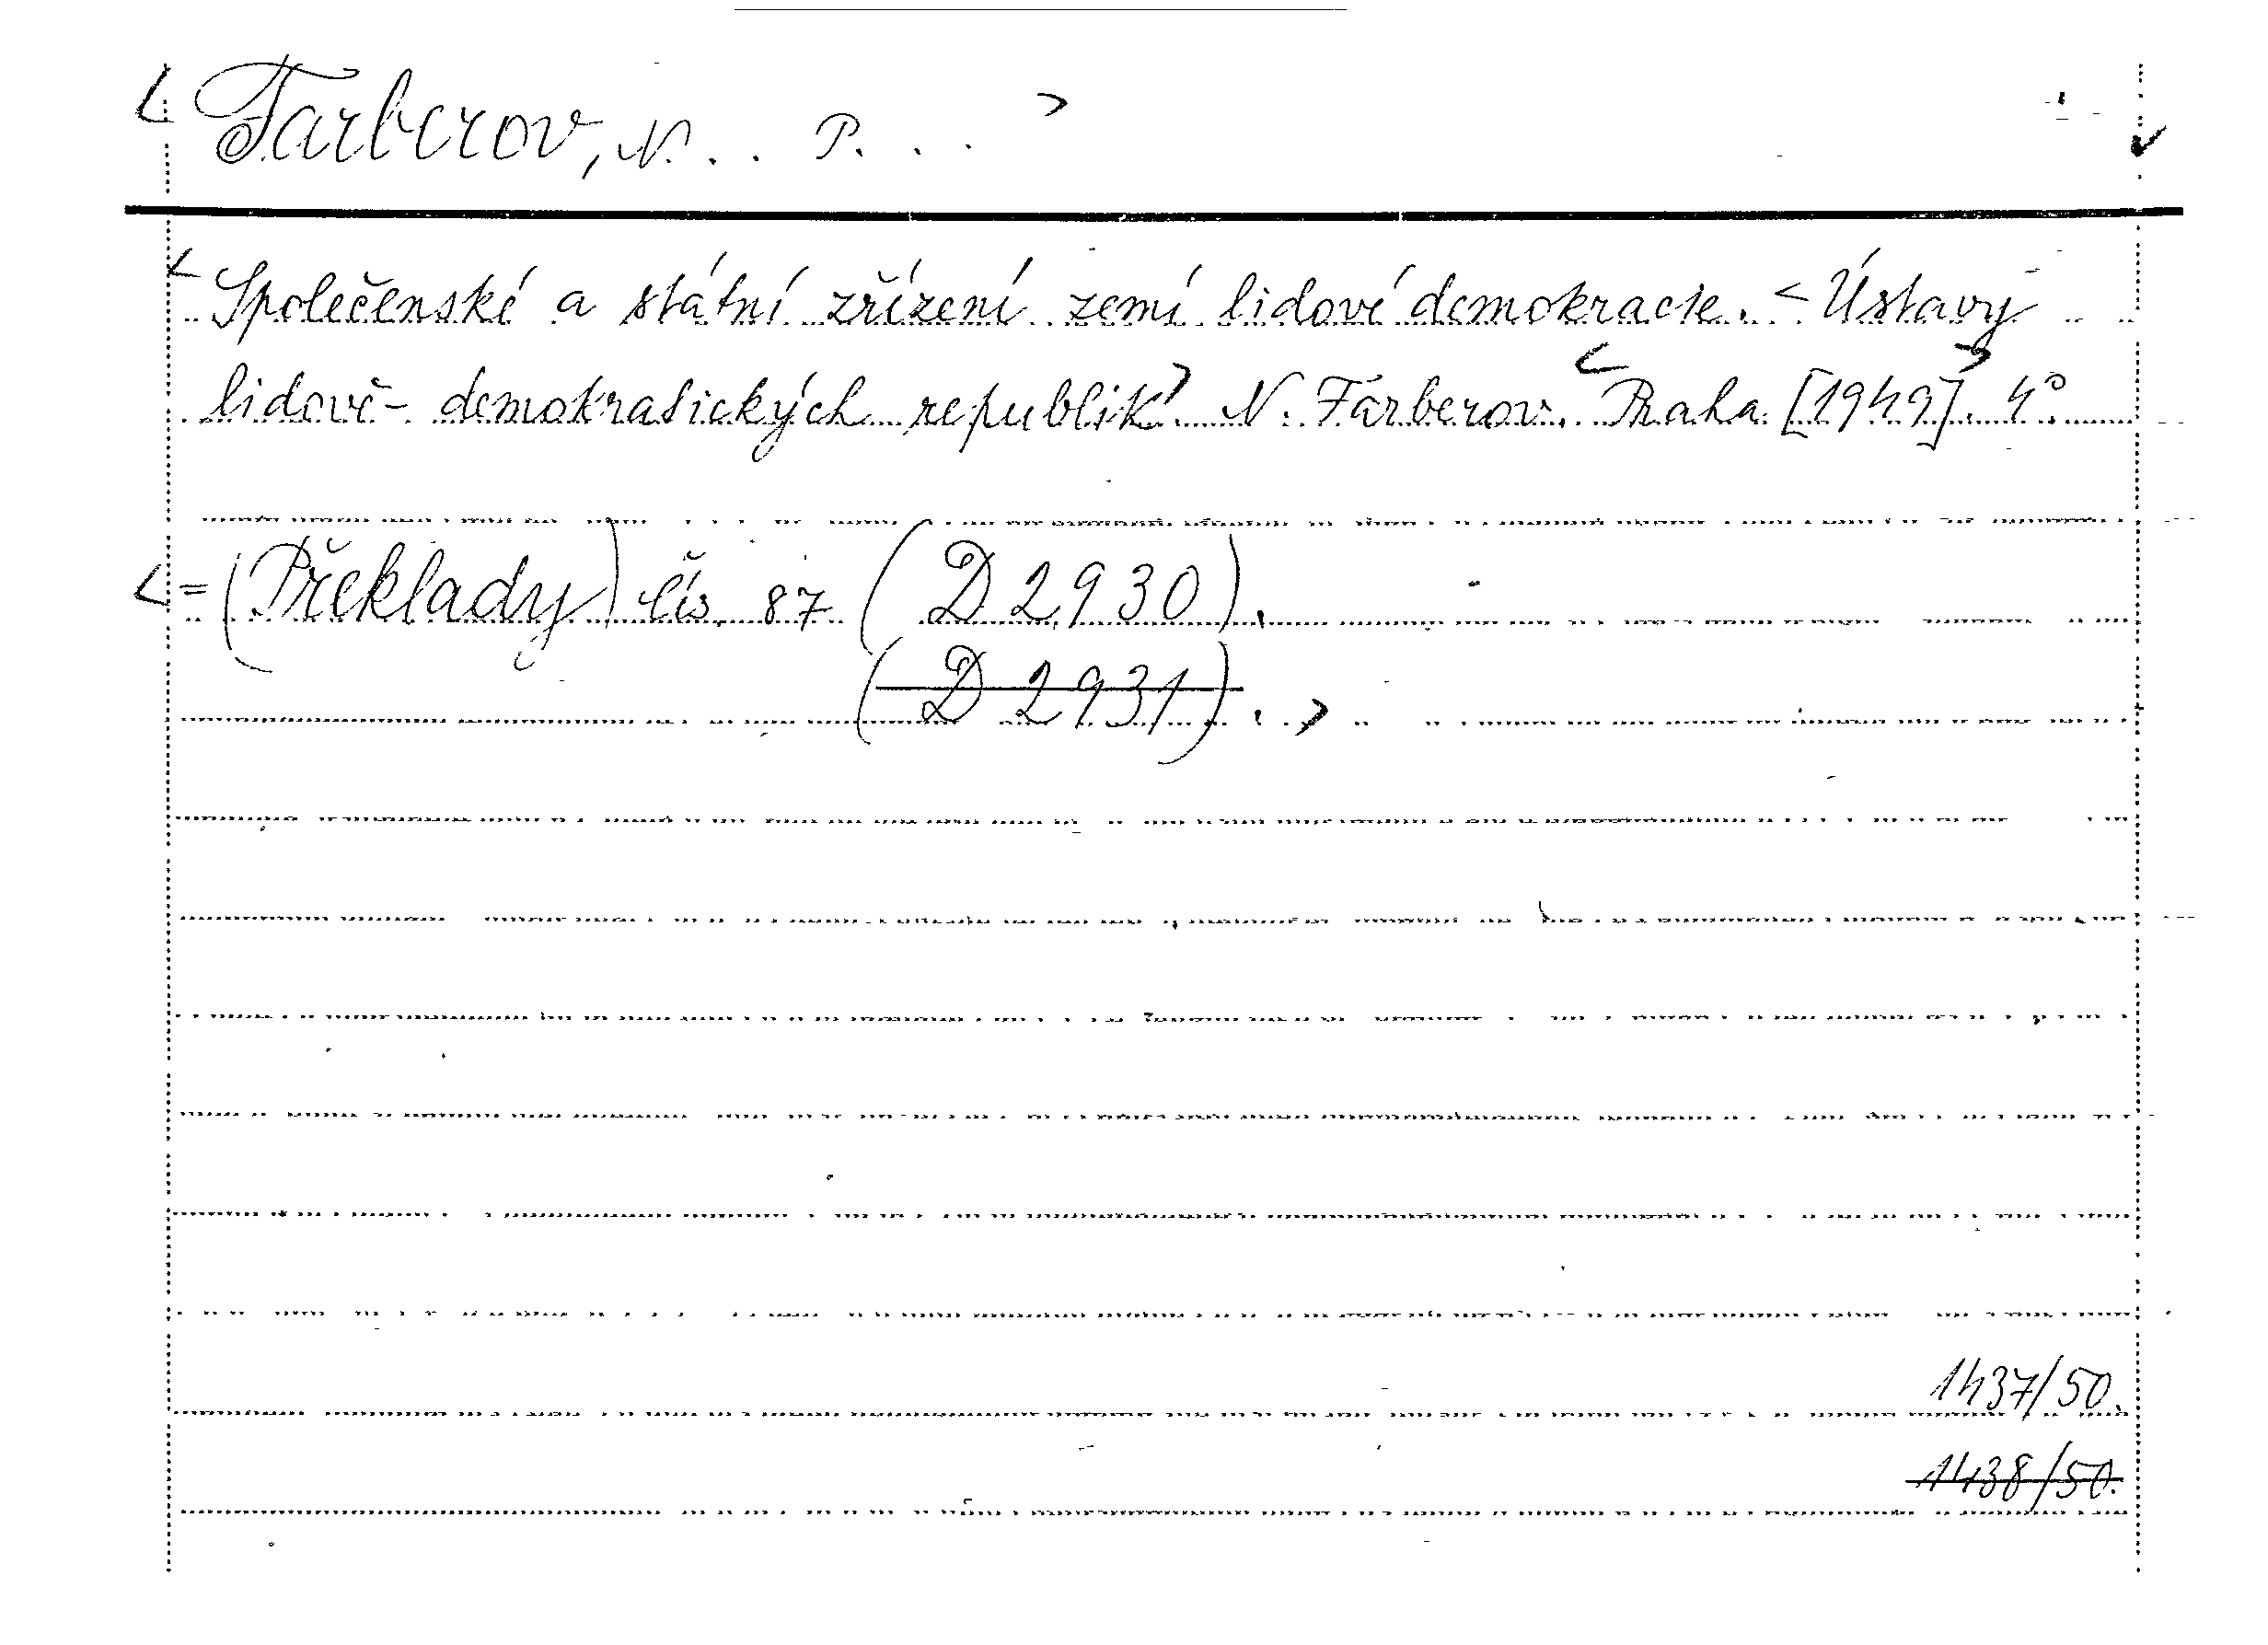 < Farberov, N. . . P. . . >
< Společenské a státní zřízení zemí lidové demokracie. < Ústavy
lidově-demokratických republik> N. Farberov. < Praha [1949]>. 4°.
< = (Překlady) čís. 87 (D 2930).
(D 2931). >
1437/50.
1438/50.